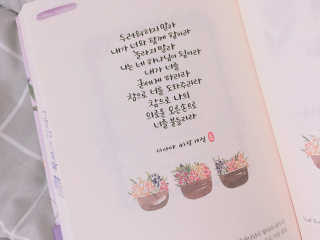 두려워하지 말라
내가 너와 함께 함이라
놀라지 말라
나는 네 하나님이 됨이라
내가 너를
굳세게 하리라
참으로 너를 도와주리라
참으로 나의
의로운 오른손으로
너를 붙들리라
이사야 41장 10절